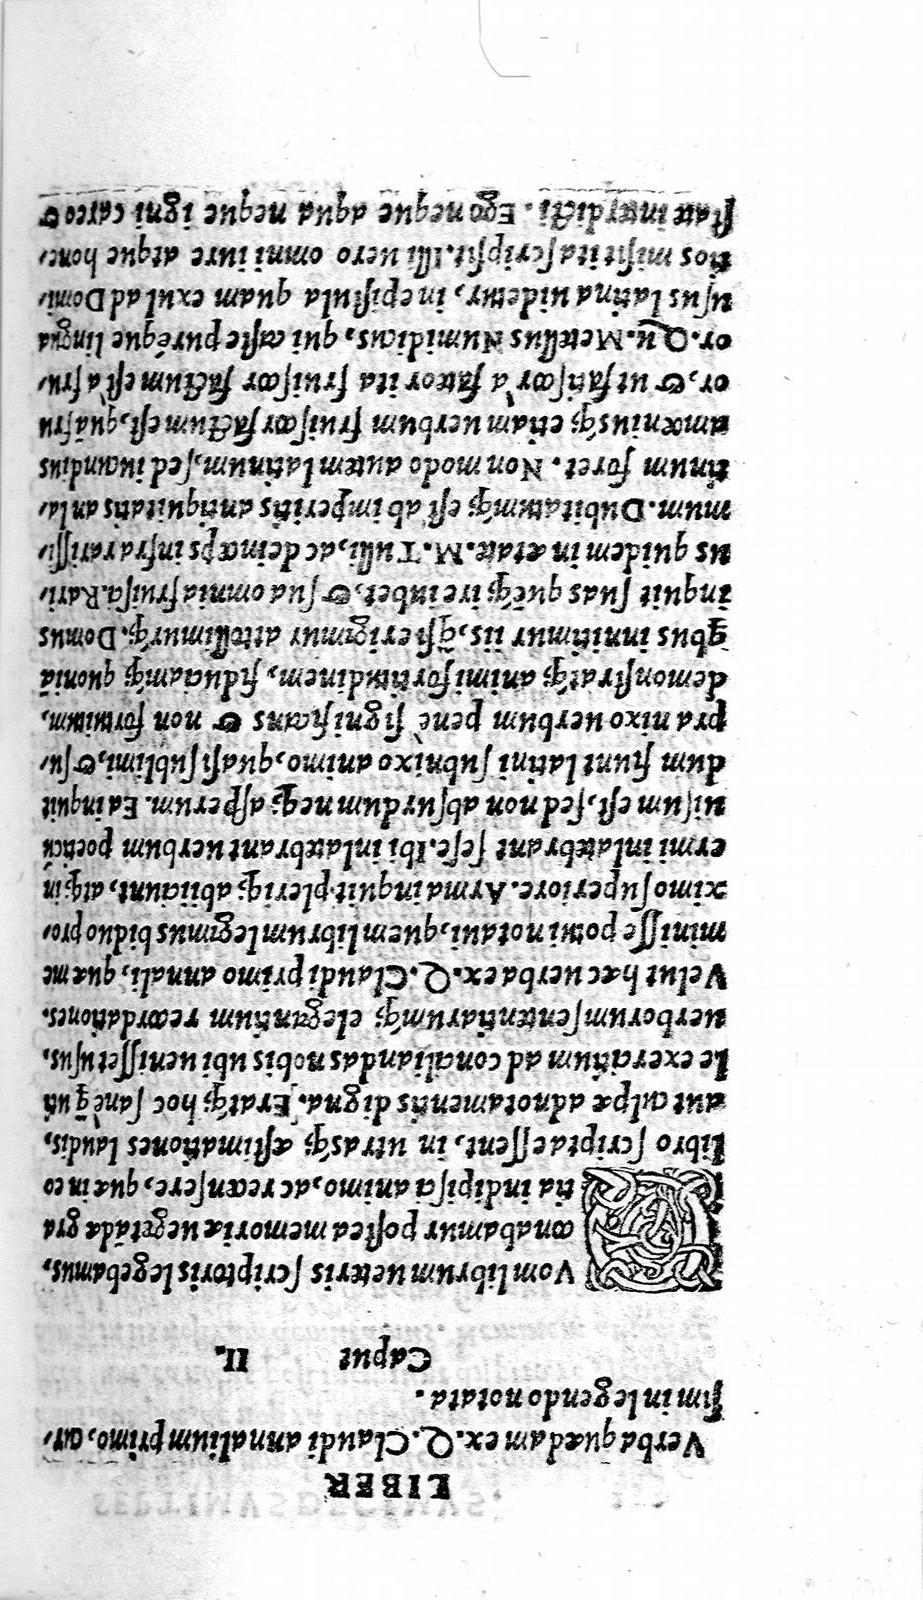 LIBER
Verba quædam ex. Q. Claudi annalium primo, cur,
sim in legendo notata.
Caput II.
Vom librum ueteris scriptoris legebamus,
conabamur postea memoriæ uegetādæ gra
tia indipisci animo, ac recensere, quæ in eo
libro scripta essent, in utrasq́; æstimationes laudis,
aut culpæ adnotamentis digna. Eratq́; hoc sanè q̃ uti
le exercitium ad conciliandas nobis ubi uenisset usus,
uerborum sententiarumq́; elegantium recordationes.
Velut hæc uerba ex. Q. Claudi primo annali, quæ me
minisse potui notaui, quem librum legimus biduo pro,
ximo superiore. Arma inquit pleriq́; abiiciunt, atq́; in
ermi inlatebrant sese. Ibi inlatebrant uerbum poeticũ
uisum est, sed non absurdum neq́; asperum. Ea inquit
dum fiunt latini subnixo animo, quasi sublimi, & su,
pra nixo uerbum penè significans & non fortuitum,
demonstratq́; animi fortitudinem, fiduciamq́; quoniā
q̃bus innitimur iis, q̃si erigimur attollimurq́;. Domus
inquit suas quēq́; ire iubet, & sua omnia fruisci. Rari,
us quidem in ætate. M. Tulli, ac deinceps infra rarissi,
mum. Dubitatumq́; est ab imperitis antiquitatis an la,
tinum foret. Non modo autem latinum, sed iucundius
amœniusq́; etiam uerbum fruiscor factum est, quā fru
or, & ut fatiscor à fateor ita fruiscor factum est à fru,
or. Q. Metellus Numidicus, qui caste puréque lingua
usus latina uidetur, in epistula quam exul ad Domi,
tios misit ita scripsit. Illi uero omni iure atque hone,
state interdicti. Ego neque aqua neque igni careo &